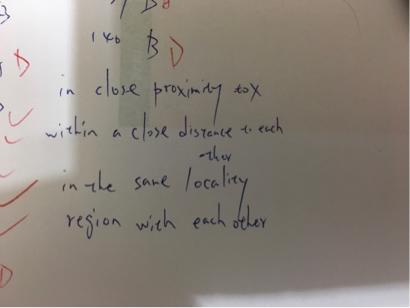 B
140 B D
D
in close proximity to X
within a close distance to each
other
in the same locality
region with each other
D